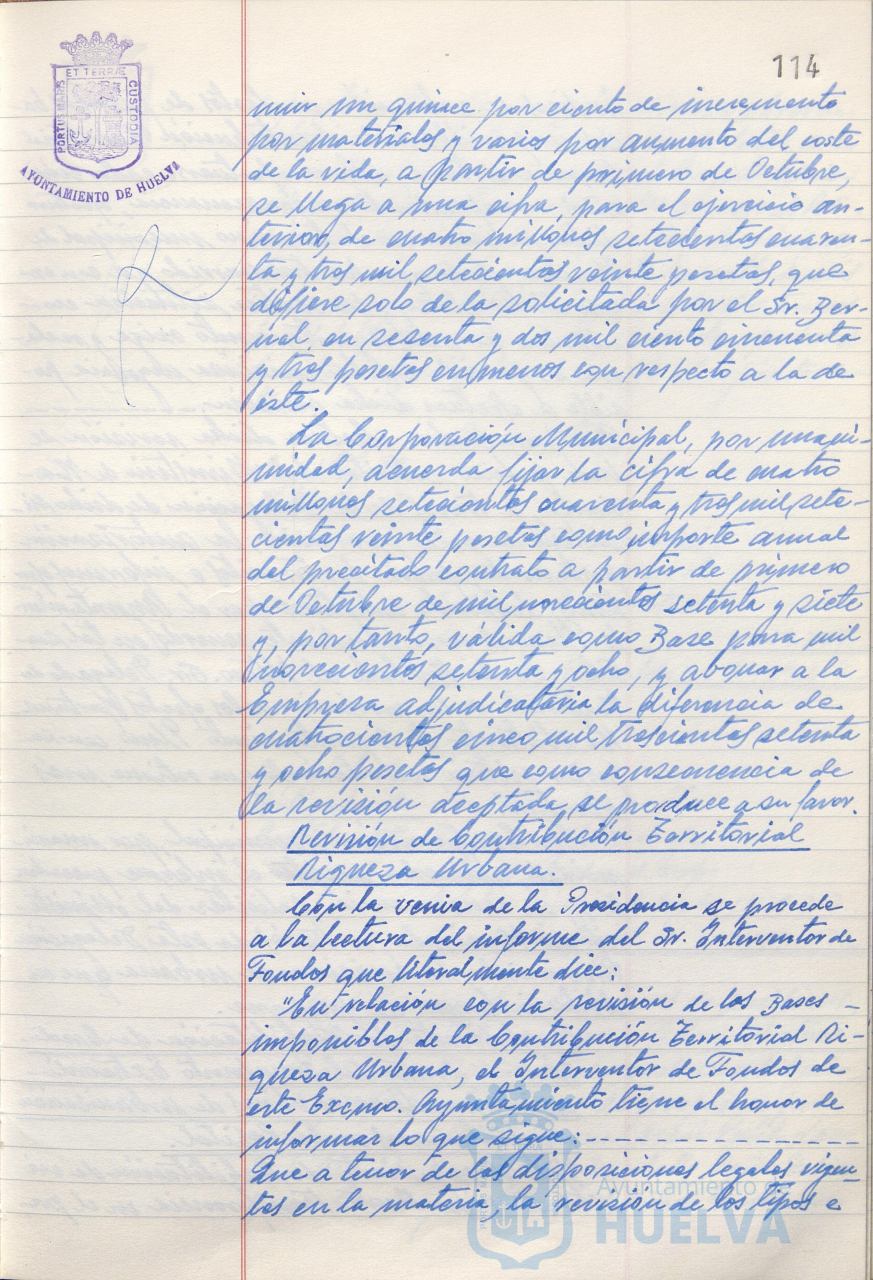 114
PORTUS MARIS ET TERRÆ CUSTODIA
AYUNTAMIENTO DE HUELVA
mir un quince por ciento de incremento
por materiales y varios por aumento del coste
de la vida, a partir de primero de Octubre,
se llega a una cifra, para el ejercicio an-
terior, de cuatro millones setecientas cuaren-
ta y tres mil setecientas veinte pesetas, que
difiere solo de la solicitada por el Sr. Ber-
nal, en sesenta y dos mil ciento cincuenta
y tres pesetas en menos con respecto a la de
éste.
La Corporación Municipal, por unani-
midad, acuerda fijar la cifra de cuatro
millones setecientas cuarenta y tres mil sete-
cientas veinte pesetas como importe anual
del precitado contrato a partir de primero
de Octubre de mil novecientos setenta y siete
y, por tanto, válida como Base para mil
novecientos setenta y ocho, y abonar a la
Empresa adjudicataria la diferencia de
cuatrocientas cinco mil trescientas setenta
y ocho pesetas que como consecuencia de
la revisión aceptada, se produce a su favor.
Revisión de Contribución Territorial
Riqueza Urbana.
Con la venia de la Presidencia se procede
a la lectura del informe del Sr. Interventor de
Fondos que literalmente dice:
"En relación con la revisión de las Bases
imponibles de la Contribución Territorial Ri-
queza Urbana, el Interventor de Fondos de
este Excmo. Ayuntamiento tiene el honor de
informar lo que sigue: ----------------
Que a tenor de las disposiciones legales vigen-
tes en la materia, la revisión de los tipos e
Ayuntamiento de
HUELVA